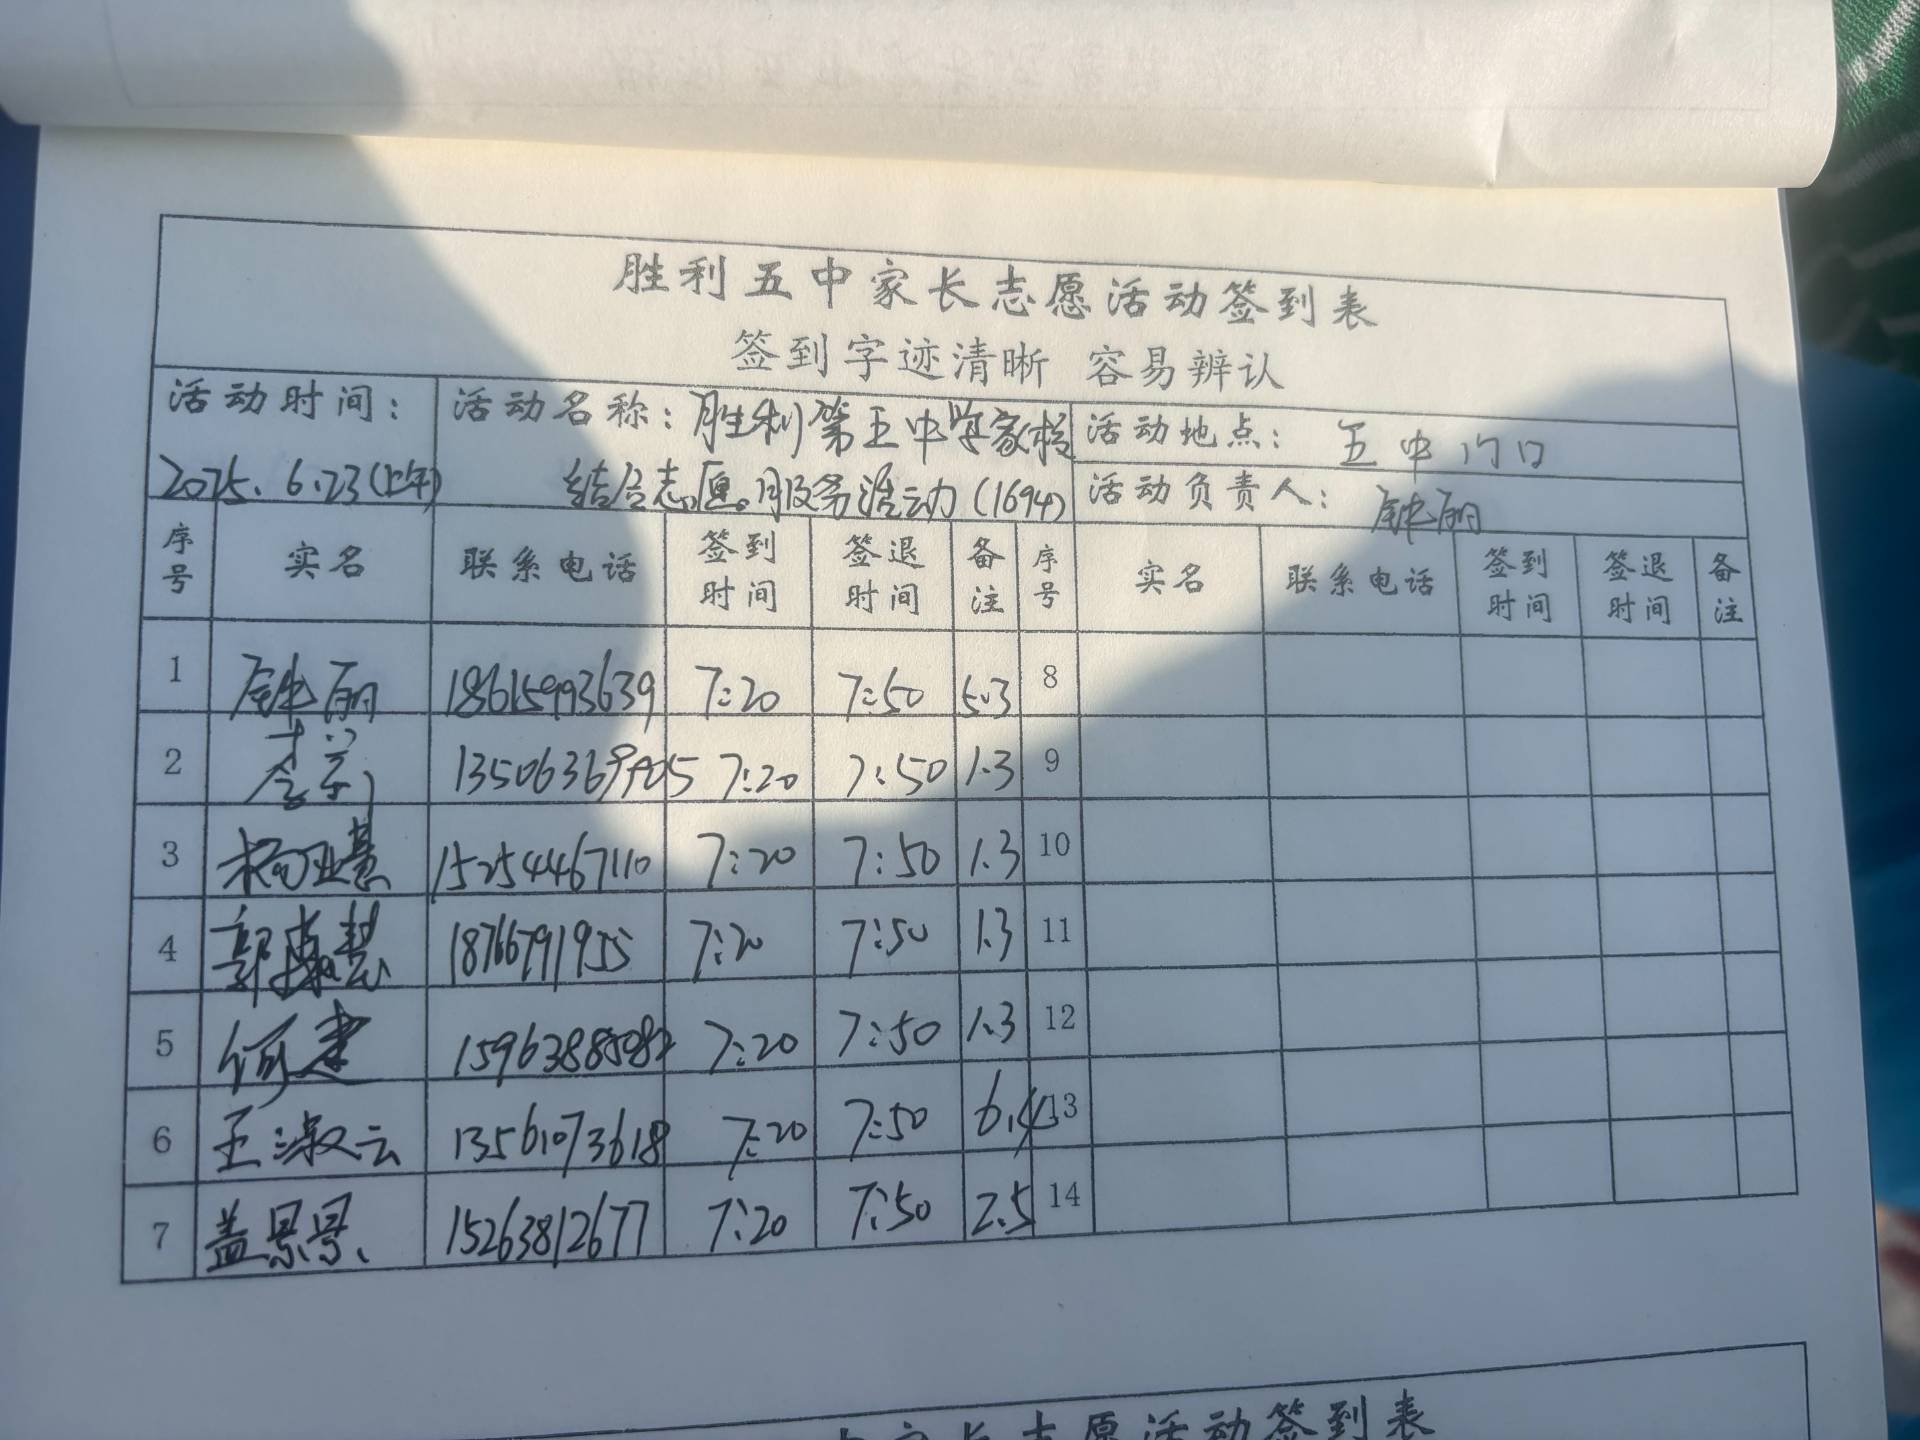 胜利五中家长志愿活动签到表
签到字迹清晰 容易辨认
活动时间：
2025.6.23(上午)
活动名称：胜利第五中学家校
结合志愿服务活动(1694)
活动地点： 五中门口
活动负责人： 钟丽
序号 实名 联系电话 签到时间 签退时间 备注 序号 实名 联系电话 签到时间 签退时间 备注
1 钟丽 18615993639 7:20 7:50 5.3 8
2 李芳 7:20 7:50 1.3 9
3 杨亚慧 15254467110 7:20 7:50 1.3 10
4 郭慧 18766791955 7:20 7:50 1.3 11
5 何建 7:20 7:50 1.3 12
6 王淑云 13561073618 7:20 7:50 13
7 盖景景 15263812677 7:20 7:50 2.5 14
家长志愿活动签到表